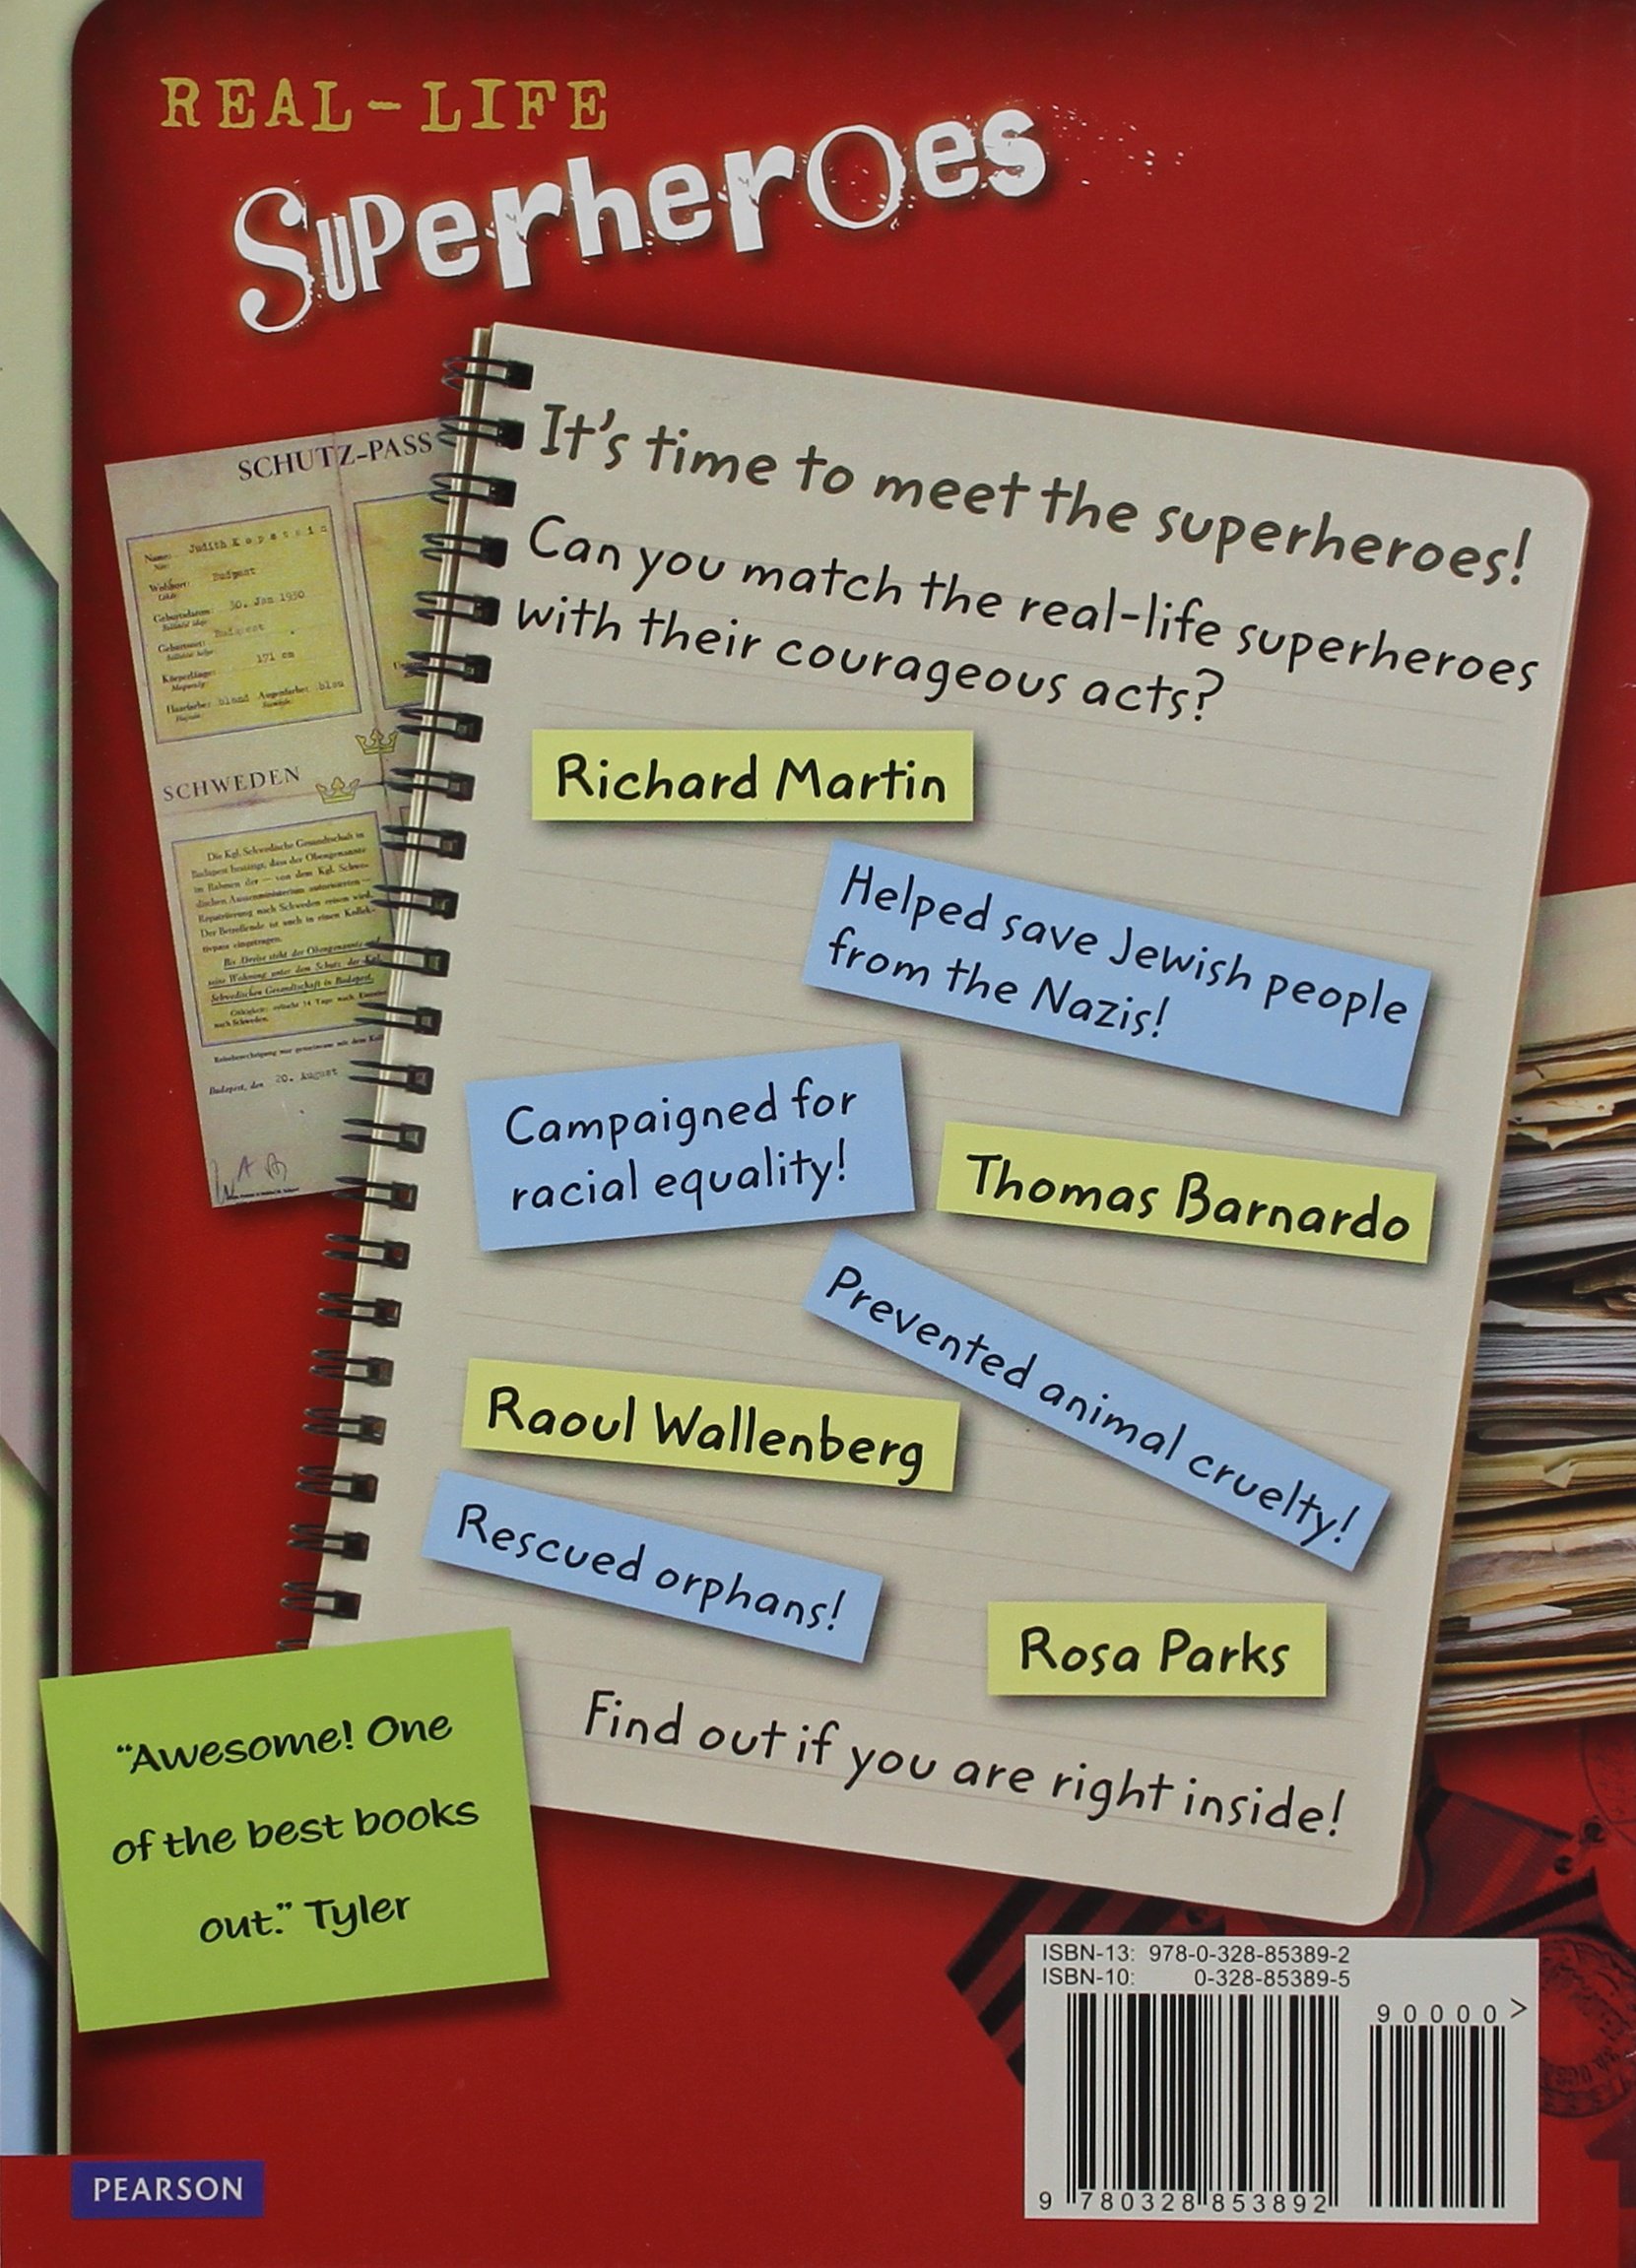 REAL-LIFE
Superheroes
SCHUTZ-PASS
Name: Judith Kopstein
Wohnort: Budapest
Geburtsdatum: 30. Jan 1930
Geburtsort: Budapest
Körperlänge: 171 cm
Haarfarbe: blond Augenfarbe: blau
SCHWEDEN
Die Kgl. Schwedische Gesandtschaft in
Budapest bestätigt, dass der Obengenannte
im Rahmen der — von dem Kgl. Schwe-
dischen Aussenministerium autorisierten —
Repatriierung nach Schweden reisen wird.
Der Betreffende ist auch in einen Kollek-
tivpass eingetragen.
Bis Abreise steht der Obengenannte und
seine Wohnung unter dem Schutz der Kgl.
Schwedischen Gesandtschaft in Budapest.
Gültigkeit: erlischt 14 Tage nach Einreise
nach Schweden.
Reiseberechtigung nur gemeinsam mit dem
Budapest, den 20. August
It's time to meet the superheroes!
Can you match the real-life superheroes
with their courageous acts?
Richard Martin
Helped save Jewish people
from the Nazis!
Campaigned for
racial equality!
Thomas Barnardo
Prevented animal cruelty!
Raoul Wallenberg
Rescued orphans!
Rosa Parks
Find out if you are right inside!
"Awesome! One
of the best books
out." Tyler
ISBN-13: 978-0-328-85389-2
ISBN-10: 0-328-85389-5
90000>
9 780328 853892
PEARSON